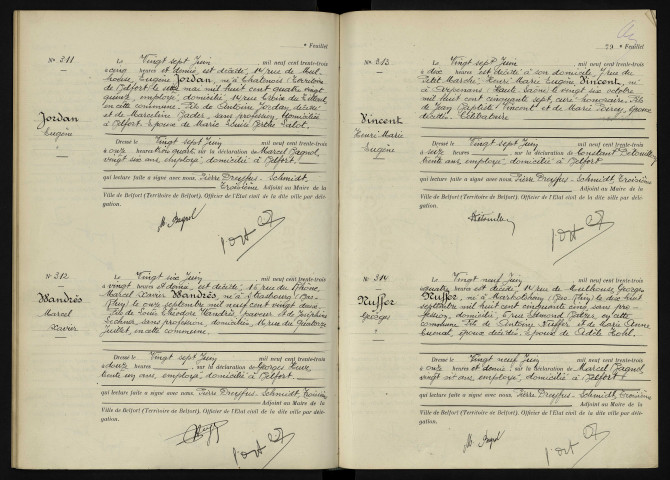 ° Feuillet
N° 311
Le Vingt sept Juin mil neuf cent trente-trois
à cinq heures et demie, est décédé, 14 rue de Mul-
house, Eugène Jordan, né à Chatenois (Territoire
de Belfort) le sept mai mil huit cent quatre vingt
employé, domicilié, 14 rue
en cette commune. Fils de Antoine Jordan, décédé
et de Marceline Cadet, sans profession, domiciliée
à Belfort. Epoux de Marie Louise Berthe
Jordan
Eugène
Dressé le Vingt sept Juin mil neuf cent trente-trois
à onze heures trois quart, sur la déclaration de Marcel Bagnol,
vingt six ans, employé, domicilié à Belfort.
qui lecture faite a signé avec nous, Pierre Dreyfus-Schmidt,
Troisième Adjoint au Maire de la
Ville de Belfort (Territoire de Belfort), Officier de l'Etat civil de la dite ville par délé-
gation.
N° 312
Le Vingt six Juin mil neuf cent trente-trois
à vingt heures et demie, est décédé, 16 rue du Rhône,
Marcel Xavier Wandrès, né à Strasbourg (Bas-
Rhin) le onze septembre mil neuf cent vingt deux.
Fils de Louis Théodore Wandrès, paveur et de Joséphine
sans profession, domiciliés, 16 rue du Quatorze
Juillet, en cette commune.
Wandrès
Marcel
Xavier
Dressé le Vingt sept Juin mil neuf cent trente-trois
à douze heures sur la déclaration de Georges
trente un ans, employé, domicilié à Belfort.
qui lecture faite a signé avec nous, Pierre Dreyfus-Schmidt, Troisième
Adjoint au Maire de la
Ville de Belfort (Territoire de Belfort), Officier de l'Etat civil de la dite ville par délé-
gation.
29 ° Feuillet
N° 313
Le Vingt sept Juin mil neuf cent trente-trois
à dix heures est décédé à son domicile, 7 rue du
Petit Marché, Henri Marie Eugène Vincent, né
à Servance (Haute Saône) le vingt six octobre
mil huit cent cinquante sept, curé honoraire. Fils
de Jean Baptiste Vincent et de Marie Perroy, époux
décédés. Célibataire
Vincent
Henri Marie
Eugène
Dressé le Vingt sept Juin mil neuf cent trente-trois
à seize heures sur la déclaration de Constant
trente ans, employé, domicilié à Belfort
qui lecture faite a signé avec nous, Pierre Dreyfus-Schmidt, Troisième
Adjoint au Maire de la
Ville de Belfort (Territoire de Belfort), Officier de l'Etat civil de la dite ville par délé-
gation.
N° 314
Le Vingt neuf Juin mil neuf cent trente-trois
à quatre heures est décédé, 14 rue de Mulhouse, Georges
Nuffer, né à (Bas-Rhin) le dix huit
septembre mil huit cent cinquante cinq, sans pro-
fession, domicilié, en cette
commune. Fils de Antoine Nuffer et de Marie Anne
époux décédés. Epoux de Adèle Kohl.
Nuffer
Georges
Dressé le Vingt neuf Juin mil neuf cent trente-trois
à onze heures et demie, sur la déclaration de Marcel Bagnol,
vingt six ans, employé, domicilié à Belfort
qui lecture faite a signé avec nous, Pierre Dreyfus-
Schmidt, Troisième Adjoint au Maire de la
Ville de Belfort (Territoire de Belfort), Officier de l'Etat civil de la dite ville par délé-
gation.